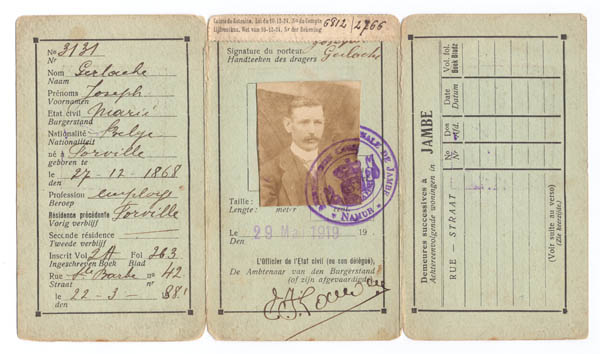 No 3131
Nr
Nom Gerlache
Naam
Prénoms Joseph
Voornamen
Etat civil Marié
Burgerstand
Nationalité Belge
Nationaliteit
né à Sorville
geboren te
le 27-12-1868
den
Profession employé
Beroep
Résidence précédente Forville
Vorig verblijf
Seconde résidence
Tweede verblijf
Inscrit Vol 2A Fol 363
Ingeschreven Boek Blad
Rue Ste Barbe no 42
Straat nr
le 22-3-881
den
6812 2766
Signature du porteur
Handteeken des dragers
Gerlache
Taille :
Lengte : meter
NAMUR
Le 29 Mai 1919 19
Den
L'Officier de l'Etat civil (ou son délégué),
De Ambtenaar van den Burgerstand
(of zijn afgevaardigde)
Demeures successives à JAMBE
Achtereenvolgende woningen in
RUE — STRAAT
No Nr
Date Datum
Vol. fol.
(Voir suite au verso)
(Zie keerzijde)